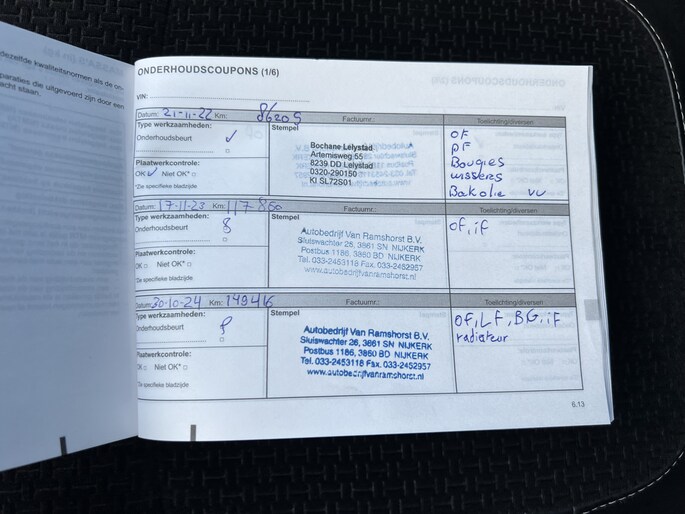 dezelfde kwaliteitsnormen als de on-
paraties die uitgevoerd zijn door een
acht staan.
ONDERHOUDSCOUPONS (1/6)
VIN:
Datum: 21-11-22 Km: 86205 Factuurnr.: Toelichting/diversen:
Type werkzaamheden:
Onderhoudsbeurt ✓
Plaatwerkcontrole:
OK ✓ Niet OK*
*Zie specifieke bladzijde
Stempel
Bochane Lelystad
Artemisweg 55
8239 DD Lelystad
0320-290150
KI SL72S01
OF
PF
Bougies
wissers
Bakolie VV
Datum: 17-11-23 Km: 117860 Factuurnr.: Toelichting/diversen:
Type werkzaamheden:
Onderhoudsbeurt
Plaatwerkcontrole:
OK Niet OK*
*Zie specifieke bladzijde
Stempel
Autobedrijf Van Ramshorst B.V.
Sluiswachter 26, 3861 SN NIJKERK
Postbus 1186, 3860 BD NIJKERK
Tel. 033-2453118 Fax. 033-2452957
www.autobedrijfvanramshorst.nl
OF, iF
Datum: 30-10-24 Km: 149416 Factuurnr.: Toelichting/diversen:
Type werkzaamheden:
Onderhoudsbeurt
Plaatwerkcontrole:
OK Niet OK*
*Zie specifieke bladzijde
Stempel
Autobedrijf Van Ramshorst B.V.
Sluiswachter 26, 3861 SN NIJKERK
Postbus 1186, 3860 BD NIJKERK
Tel. 033-2453118 Fax. 033-2452957
www.autobedrijfvanramshorst.nl
OF, LF, BG, iF
radiateur
6.13